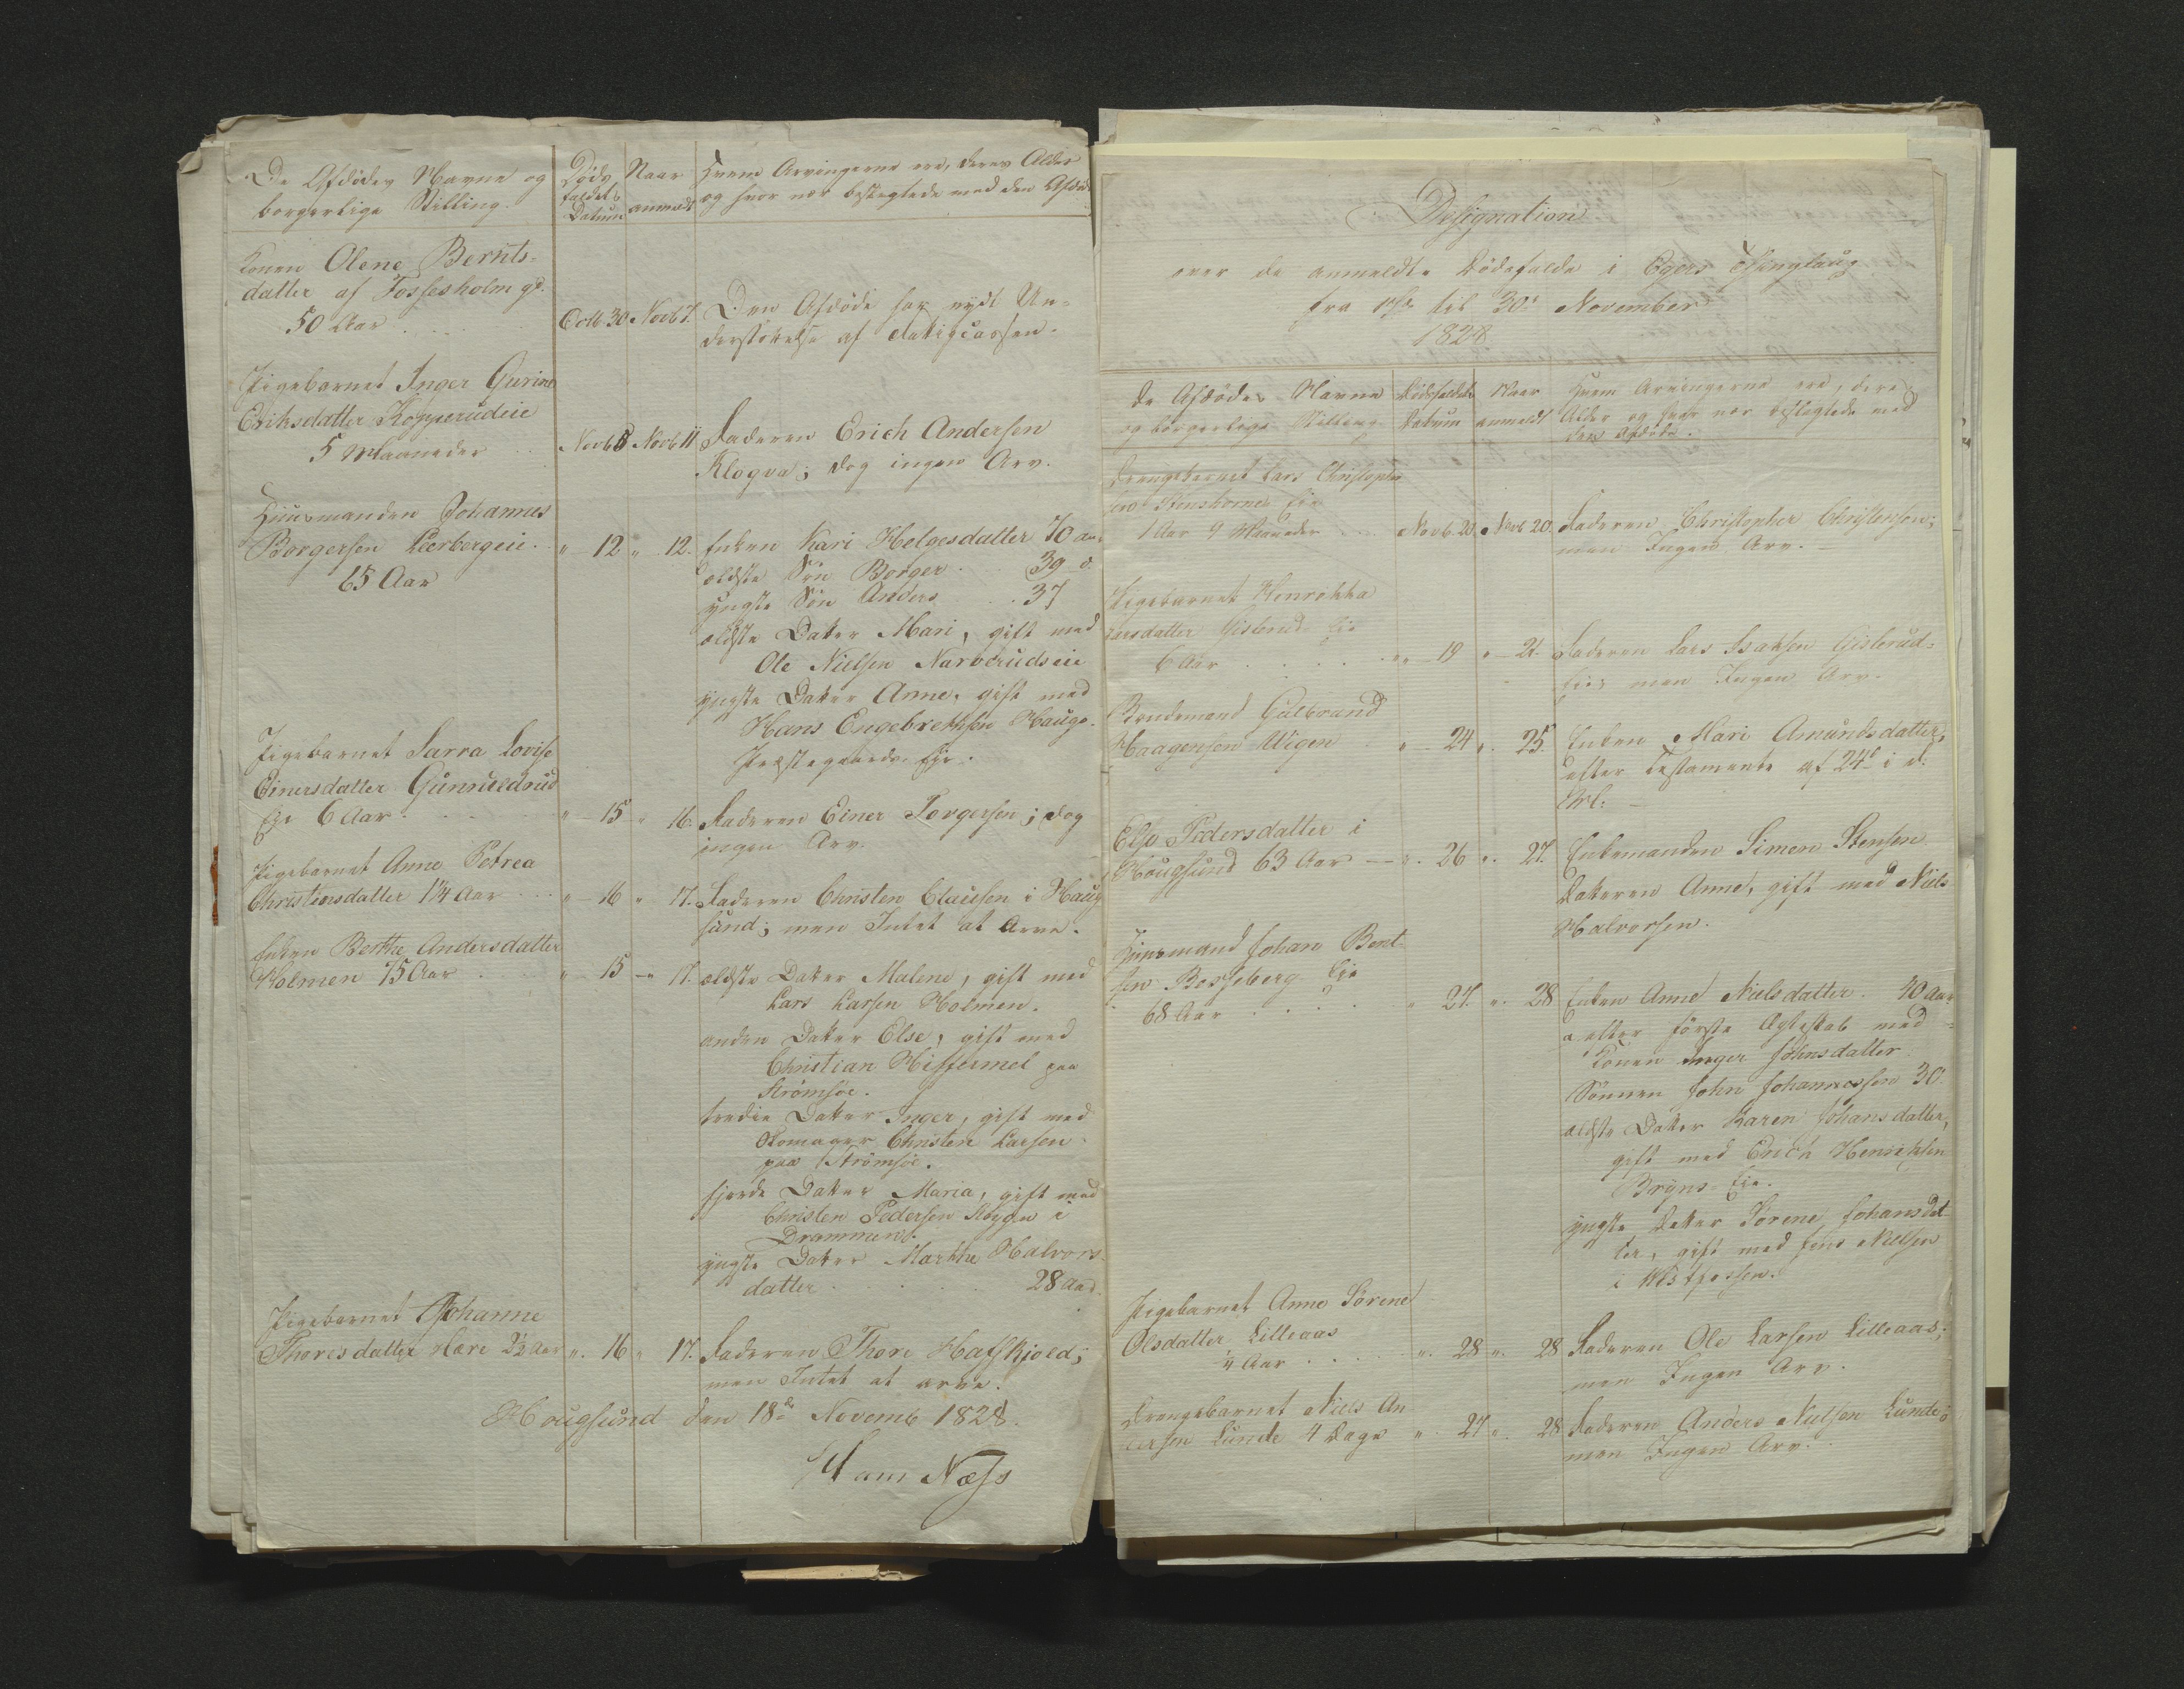 De Afdødes Navne og
borgerlige Stilling.
Døds
faldets
Datum
Naar
anmeldt
Hvem Arvingerne ere, deres Alder
og hvor nær beslegtede med den Afdøde
Konen Olene Bernts-
datter af Fossesholm gd.
50 Aar
Octb 30 Novb 7.
Den Afdøde har nydt Un-
derstøttelse af Fattigcassen.
Pigebarnet Inger Gurine
Eriksdatter Kopperudeie
5 Maaneder
Novb 8 Novb 11
Faderen Erich Andersen
Klogva; dog ingen Arv.
Huusmanden Johannes
Borgersen Leerbergeie
65 Aar
" 12 " 12.
Enken Kari Helgesdatter 70 Aar
ældste Søn Borger 39 d.
yngste Søn Anders 37
ældste Datter Mari, gift med
Ole Nielsen Narverudseie
yngste Datter Anne, gift med
Hans Engebrethsen Hauge-
Præstegaards Eje.
Pigebarnet Sarra Lovise
Einersdatter Gunnildrud
Eje 6 Aar
" 15 " 16.
Faderen Einer Torgersen; dog
ingen Arv.
Pigebarnet Anne Petrea
Christensdatter 1¼ Aar
" 16 " 17.
Faderen Christen Clausen i Haug
sund; men Intet at Arve.
Enken Berthe Andersdatter
Holmen 75 Aar
" 15 " 17.
ældste Datter Malene, gift med
Lars Larsen Holmen.
anden Datter Else, gift med
Christian Hiffermel paa
Strømsøe.
tredie Datter Inger, gift med
Skomager Christen Larsen
paa Strømsøe.
fjerde Datter Maria, gift med
Christen Pedersen i
Drammen.
yngste Datter Marthe Halvors
datter 28 Aar.
Pigebarnet Johanne
Thoresdatter 2½ Aar
" 16 " 17.
Faderen Thore Hafskjold;
men Intet at arve.
Hougsund den 18de Novemb 1828.
Ham Næss
Designation
over de anmeldte Dødsfalde i Egers Thinglaug
fra 18de til 30te November
1828
De Afdødes Navne
og borgerlige Stilling
Dødsfaldets
Datum
Naar
anmeldt
Hvem Arvingerne ere, deres
Alder og hvor nær beslegtede med
den Afdøde.
Drengebarnet Lars Christopher
sen Stenshorne Eje
1 Aar 9 Maaneder
Novb. 20. Novb 20.
Faderen Christopher Christensen;
men Ingen Arv.
Pigebarnet Henrikka
Larsdatter Gislerud Eje
6 Aar
" 19 " 21
Faderen Lars Isaksen Gislerud-
Eje; men Ingen Arv.
Bondemand Gulbrand
Haagensen Wigen
" 24 " 25.
Enken Mari Amundsdatter,
efter Testamente af 24de i d.
Else Pedersdatter i
Hougsund 63 Aar
" 26 " 27.
Enkemanden Simen Stensen
Datteren Anne, gift med Niels
Halvorsen.
Huusmand Johan Bent-
sen Bersseberg Eje
68 Aar
" 27. " 28
Enken Anne Nielsdatter. 40 Aar
a efter første Ægteskab med
Konen Inger Johnsdatter
Sønnen John Johannessen 30
ældste Datter Karen Johansdatter,
gift med Erich Henrichsen
Bryns-Eje.
yngste Datter Sørene Johansdat
ter, gift med Jens Nielsen
i Westfossen.
Pigebarnet Anne Sørene
Olsdatter Lilleaas
¼ Aar
" 28 " 28
Faderen Ole Larsen Lilleaas;
men Ingen Arv.
Drengebarnet Niels An
dersen Lunde 4 Dage
" 27 " 28
Faderen Anders Nielsen Lunde;
men Ingen Arv.